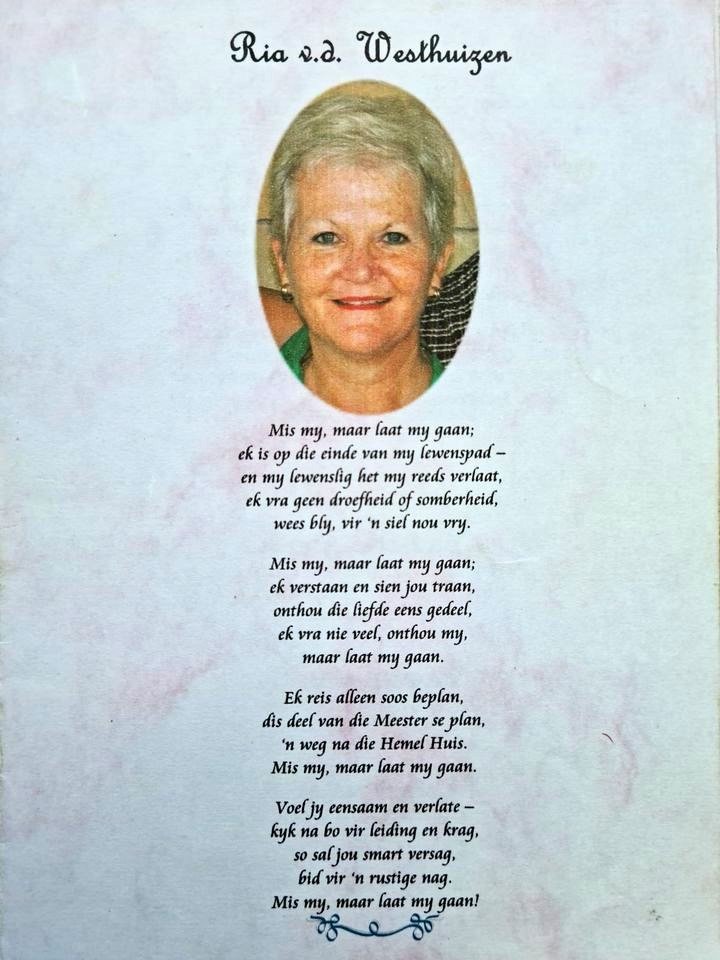 Ria v.d. Westhuizen
Mis my, maar laat my gaan;
ek is op die einde van my lewenspad –
en my lewenslig het my reeds verlaat,
ek vra geen droefheid of somberheid,
wees bly, vir ‘n siel nou vry.
Mis my, maar laat my gaan;
ek verstaan en sien jou traan,
onthou die liefde eens gedeel,
ek vra nie veel, onthou my,
maar laat my gaan.
Ek reis alleen soos beplan,
dis deel van die Meester se plan,
‘n weg na die Hemel Huis.
Mis my, maar laat my gaan.
Voel jy eensaam en verlate –
kyk na bo vir leiding en krag,
so sal jou smart versag,
bid vir ‘n rustige nag.
Mis my, maar laat my gaan!